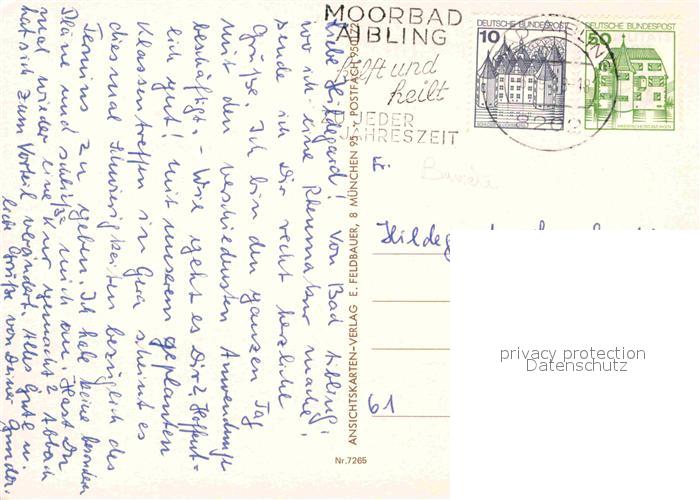 Liebe Hildegard! Von Bad Aibling,
wo ich eine Rheumakur mache,
sende ich Dir recht herzliche
Grüße. Ich bin den ganzen Tag
mit den verschiedensten Anwendungen
beschäftigt. – Wie geht es Dir? Hoffent-
lich gut! Mit unserem geplanten
Klassentreffen in Gera scheint es
diesmal Schwierigkeiten bezüglich des
Termins zu geben. Ich habe keine besonderen
Pläne und schließe mich an. Hast Du
mal wieder eine Kur gemacht? Abbach
hat sich zum Vorteil verändert. Alles Gute u.
liebe Grüße von Deiner
ANSICHTSKARTEN-VERLAG E. FELDBAUER, 8 MÜNCHEN 95 - POSTFACH 950172
Nr.7265
MOORBAD
AIBLING
hilft und
heilt
ZU JEDER
JAHRESZEIT
8202
DEUTSCHE BUNDESPOST
10
DEUTSCHE BUNDESPOST
50
Hildeg
61
privacy protection
Datenschutz